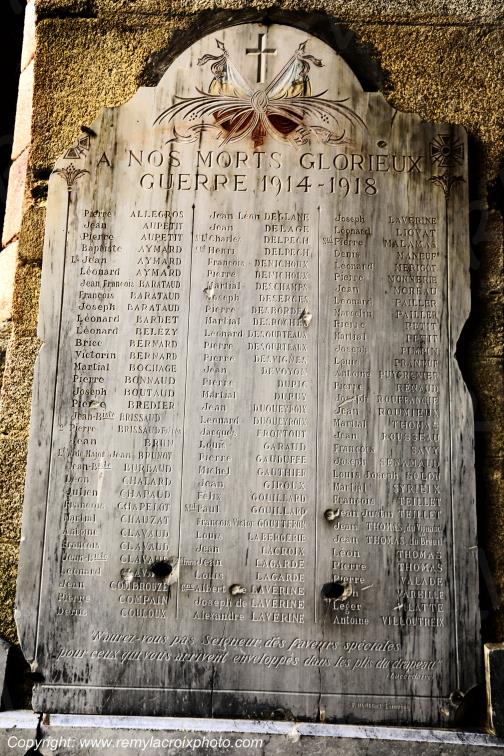 A NOS MORTS GLORIEUX
GUERRE 1914-1918
Pierre ALLEGROS
Jean AUPETIT
Pierre AUPETIT
Baptiste AYMARD
Jean AYMARD
Léonard AYMARD
Jean François BARATAUD
François BARATAUD
Joseph BARATAUD
Léonard BARDET
Léonard BELÉZY
Brice BERNARD
Victorin BERNARD
Martial BOCHAGE
Pierre BONNAUD
Joseph BOUTAUD
Pierre BREDIER
Jean-Bte BRISSAUD
Pierre BRISSAUD
Jean BRUN
Jean BRUNOT
Jean-Bte BURBAUD
Léon CHALARD
Julien CHAPAUD
François CHAPELOT
Martial CHAUZAT
Antoine CLAVAUD
François CLAVAUD
CLAVAUD
Léonard
Jean COMBROUZE
Pierre COMPAIN
Denis COULOUX
Jean Léon DEBLANE
Jean DELAGE
Charles DELPECH
Henri DELPECH
François DENICHOUX
Pierre DENICHOUX
Martial DESCHAMPS
Joseph DESERCES
Pierre DESBORDES
Martial DESROCHE
Léonard DESOURTEAUX
Pierre DESOURTEAUX
Pierre DESVIGNES
Jean DEVOYON
Pierre DUPIC
Martial DUPUY
Jean DUQUEYROIX
Léonard DUQUEYROIX
Jacques FRONTOUT
Louis GARAUD
Pierre GAUDUFFE
Michel GAUTHIER
Jean GIROUX
Félix GOUILLARD
Paul GOUILLARD
François Victor GOUTTERON
Louis LABERGERIE
Jean LACROIX
Jean LAGARDE
Louis LAGARDE
Albert LAVERINE
Joseph de LAVERINE
Alexandre LAVERINE
Joseph LAVERINE
Léonard LIQVAT
Pierre MALAMAS
Denis MANEUF
Léonard MERIGOT
Pierre MONNERIE
Jean MOREAU
Léonard PAILLER
PAILLER
Pierre PETIT
Martial PETIT
Joseph
Louis
Antoine PUYCHENET
Pierre RENAUD
Joseph ROUFFRANCHE
Jean ROUMIEUX
Martial THOMAS
Jean ROUSSEAU
François SAVY
Joseph SENAMAUD
Louis Joseph
Martial SYRIEIX
François TEILLET
Jean Justin TEILLET
Jean THOMAS
Jean THOMAS du Breuil
Léon THOMAS
Pierre THOMAS
Pierre VALADE
VAREILLE
Leger
Antoine VILLOUTREIX
"N'aurez-vous pas Seigneur des faveurs spéciales
pour ceux qui vous arrivent enveloppés dans les plis du drapeau"
(Lacordaire)
Copyright - www.remylacroixphoto.com